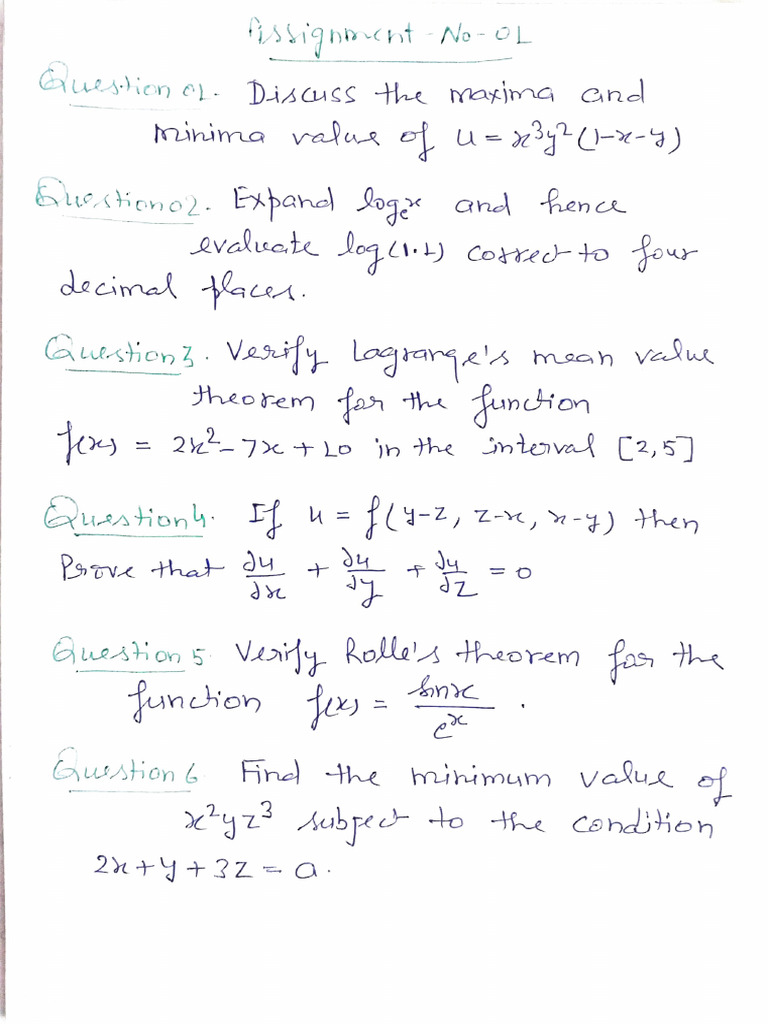 Assignment-No-01
Question 01. Discuss the maxima and
minima value of u = x³y²(1-x-y)
Question 02. Expand logₑx and hence
evaluate log(1.1) correct to four
decimal places.
Question 3. Verify Lagrange's mean value
theorem for the function
f(x) = 2x² - 7x + 10 in the interval [2,5]
Question 4. If u = f(y-z, z-x, x-y) then
Prove that ∂u/∂x + ∂u/∂y + ∂u/∂z = 0
Question 5. Verify Rolle's theorem for the
function f(x) = sinx/eˣ .
Question 6 Find the minimum value of
x²yz³ subject to the condition
2x+y+3z = a.